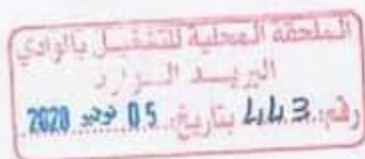 الملحقة المحلية للتشغيل بالوادي
البريد الوارد
رقم: 443 بتاريخ: 05 نوفمبر 2020